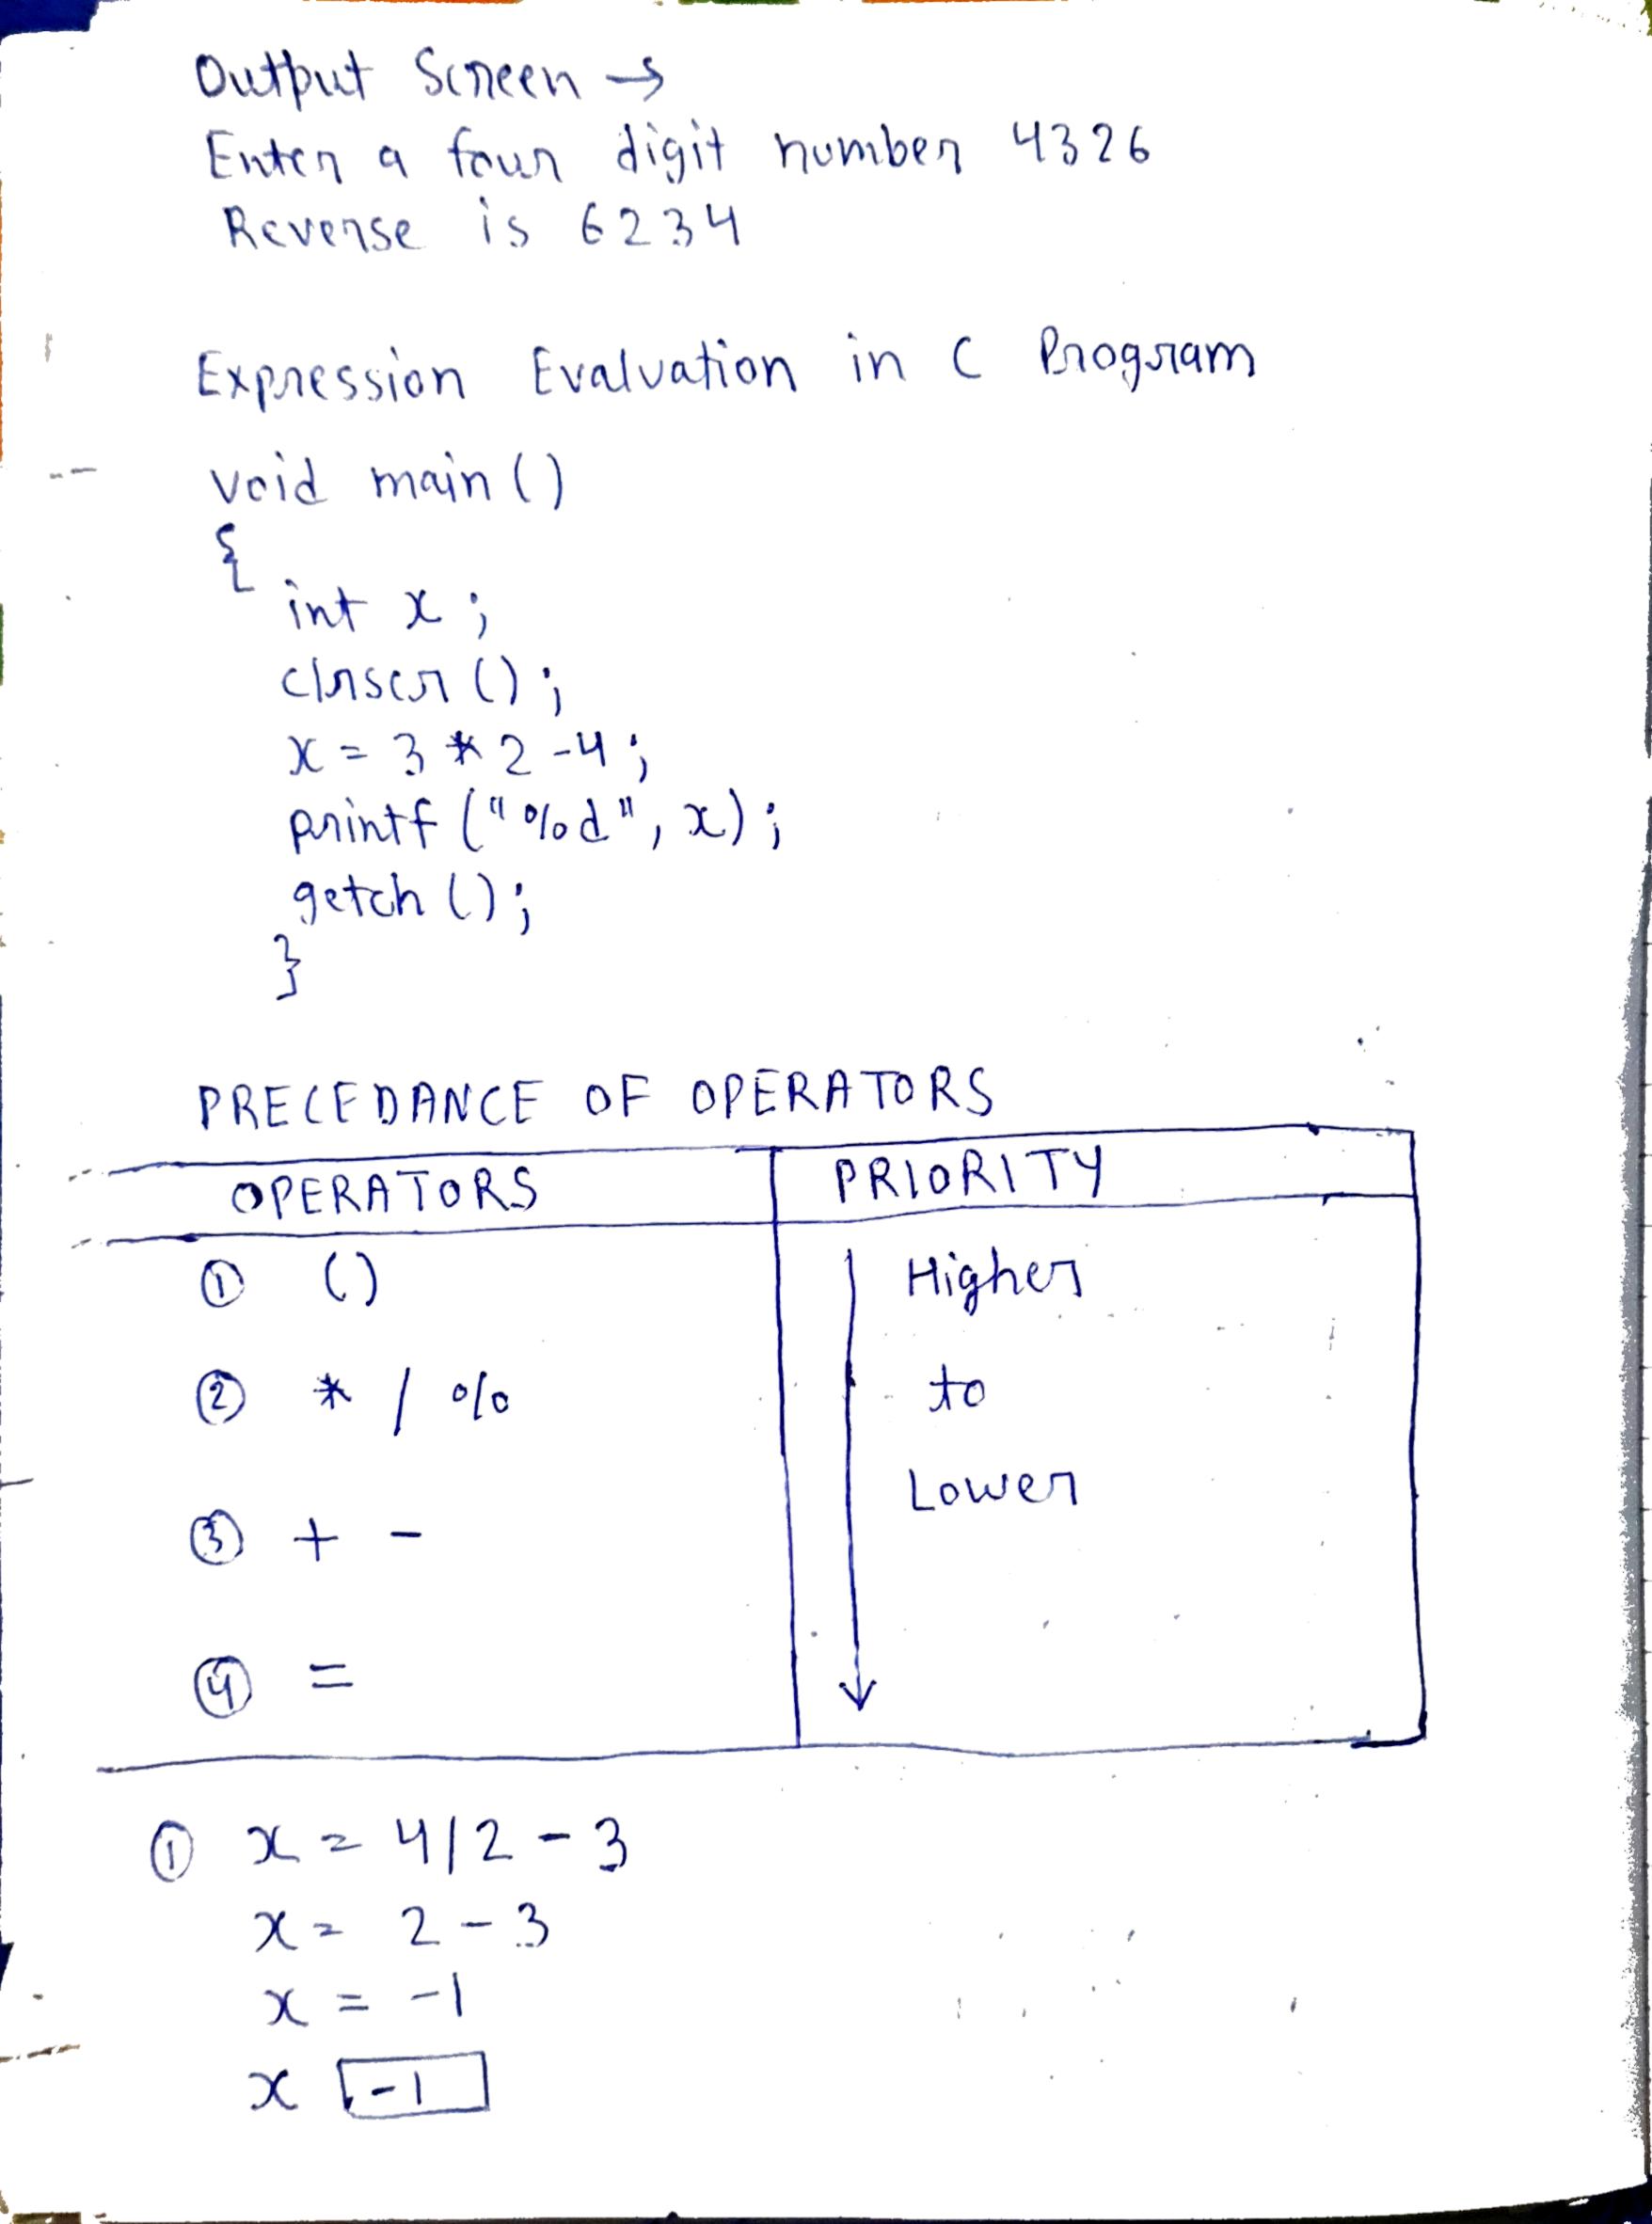 Output Screen →
Enter a four digit number 4326
Reverse is 6234
Expression Evaluation in C Program
void main()
{
int x;
clrscr();
x = 3 * 2 - 4;
printf("%d", x);
getch();
}
PRECEDANCE OF OPERATORS
OPERATORS PRIORITY
① () Higher
② * / % to
Lower
③ + -
④ =
① x = 4/2 - 3
x = 2 - 3
x = -1
x -1